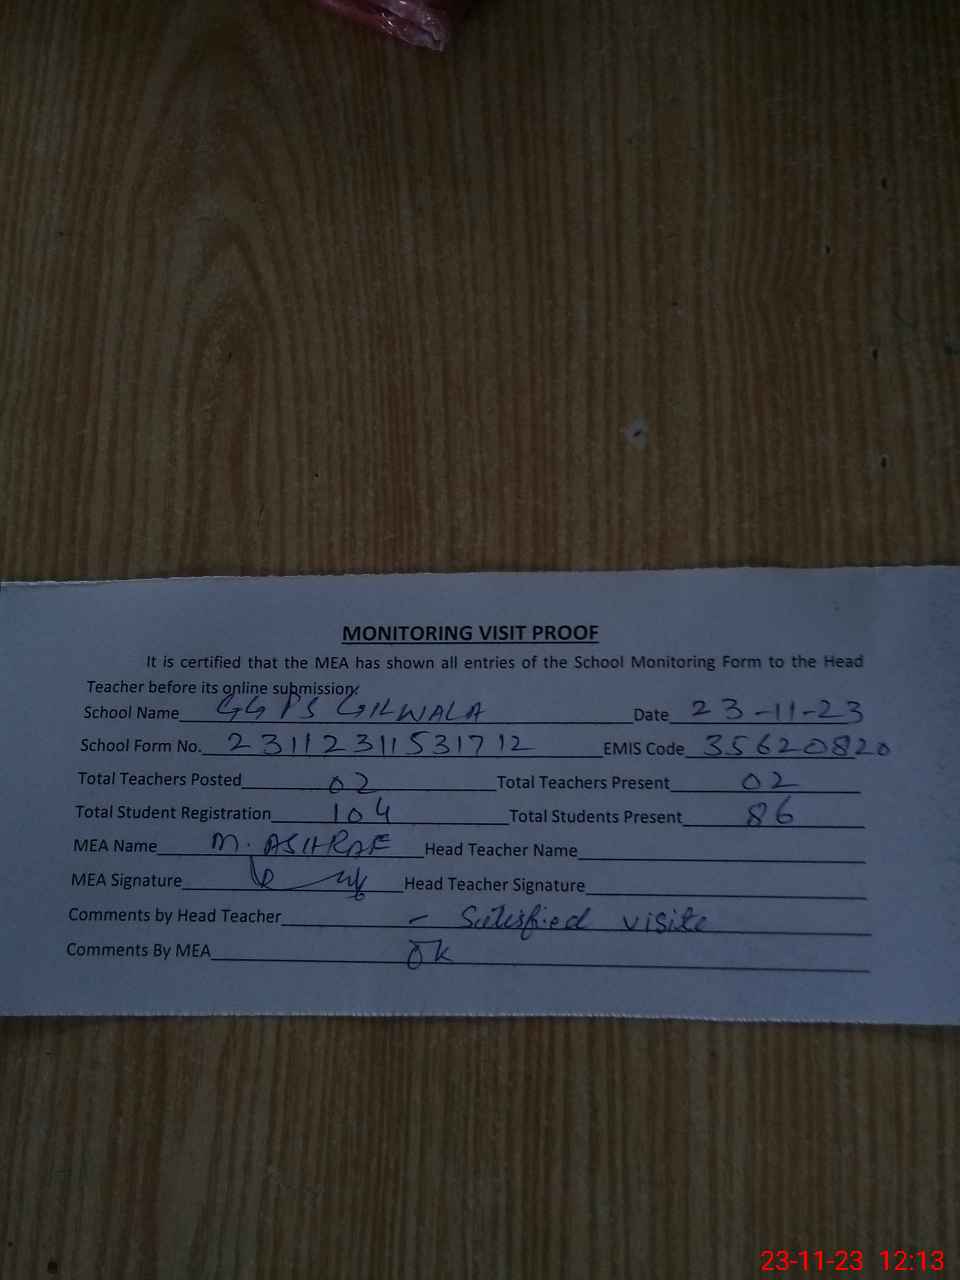 MONITORING VISIT PROOF
It is certified that the MEA has shown all entries of the School Monitoring Form to the Head
Teacher before its online submission.
School Name GGPS GILWALA Date 23-11-23
School Form No. 23112311531712 EMIS Code 35620820
Total Teachers Posted 02 Total Teachers Present 02
Total Student Registration 104 Total Students Present 86
MEA Name M. ASHRAF Head Teacher Name
MEA Signature Head Teacher Signature
Comments by Head Teacher - Satisfied visite
Comments By MEA OK
23-11-23 12:13